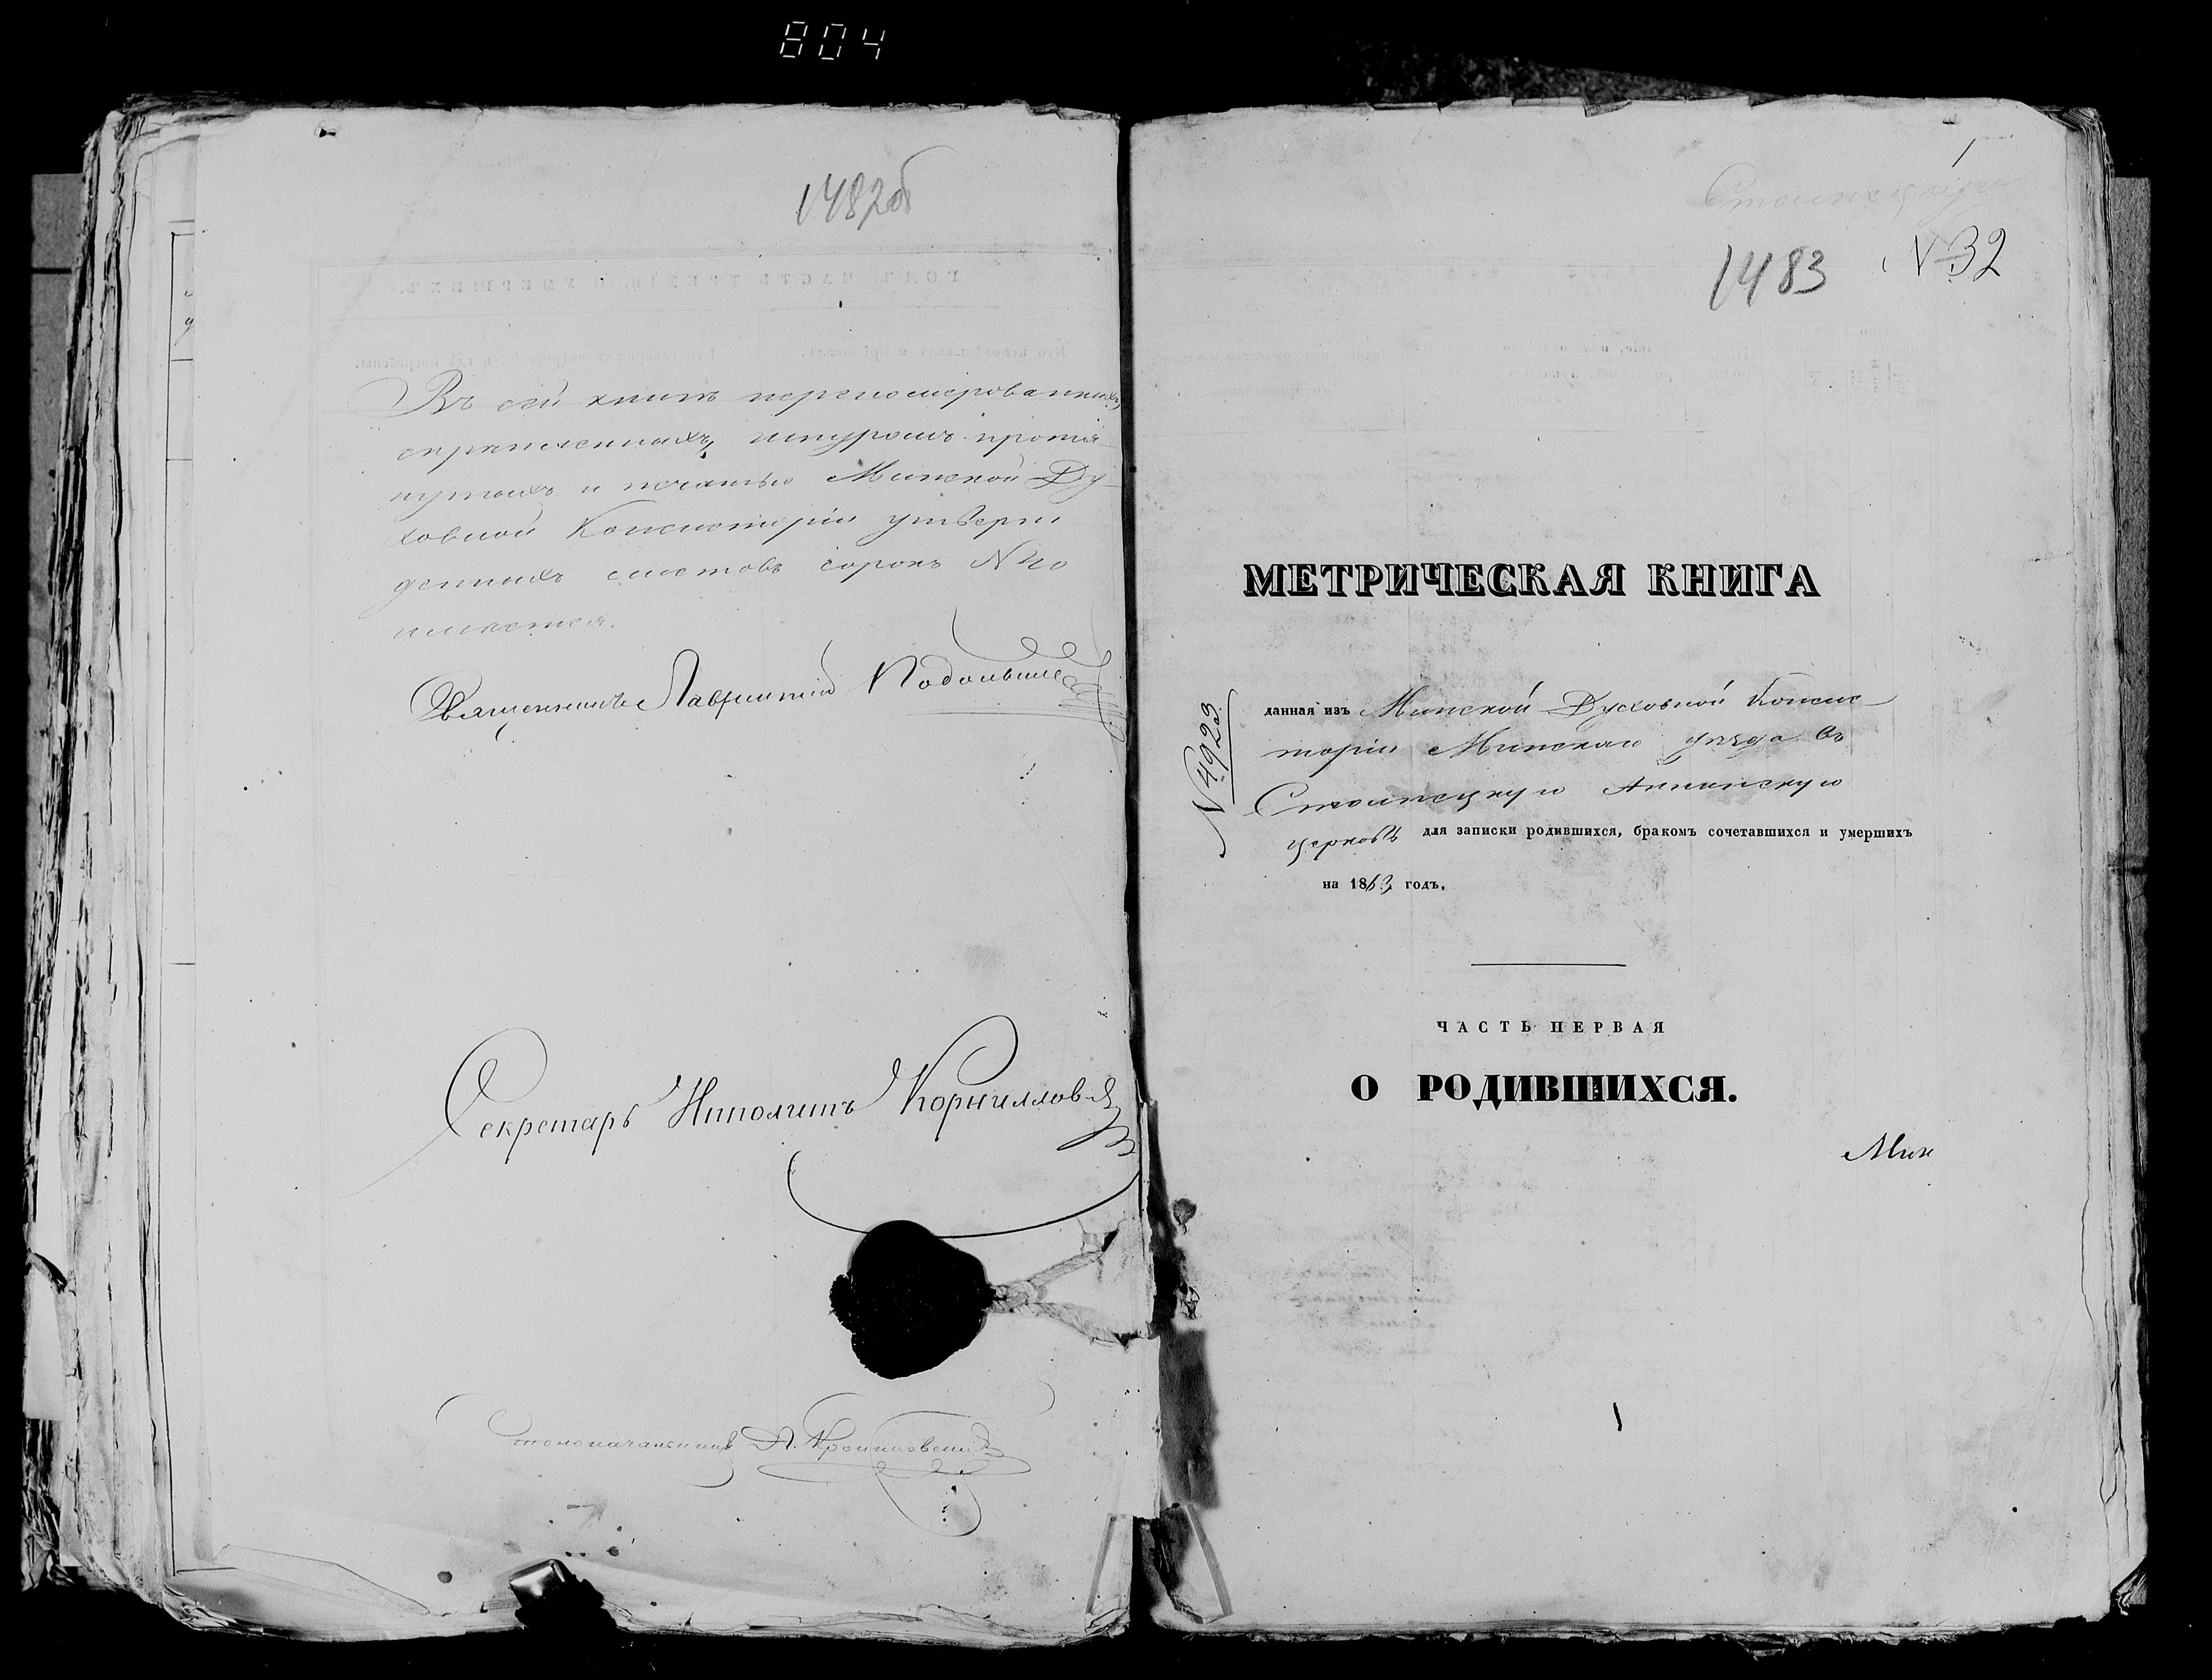 804
1482об
Въ сей книгѣ перенумерованныхъ,
скрѣпленныхъ, шнуромъ протя
нутыхъ и печатью Минской Ду-
ховной Консисторіи утверж
денныхъ листовъ сорокъ N 40
имѣется.
Священникъ Лаврентій
Секретарь Иполитъ
Столоначальникъ А.
1
1483 N 32
МЕТРИЧЕСКАЯ КНИГА
N 4923
данная изъ Минской Духовной Консис-
торіи Минскаго уѣзда въ
Столпецкую Аннинскую
церковь для записки родившихся, бракомъ сочетавшихся и умершихъ
на 1863 годъ.
ЧАСТЬ ПЕРВАЯ
О РОДИВШИХСЯ.
Мин